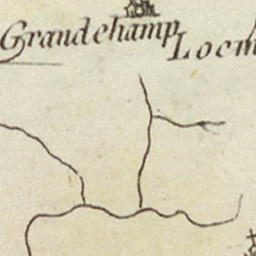 Grandchamp
Locm